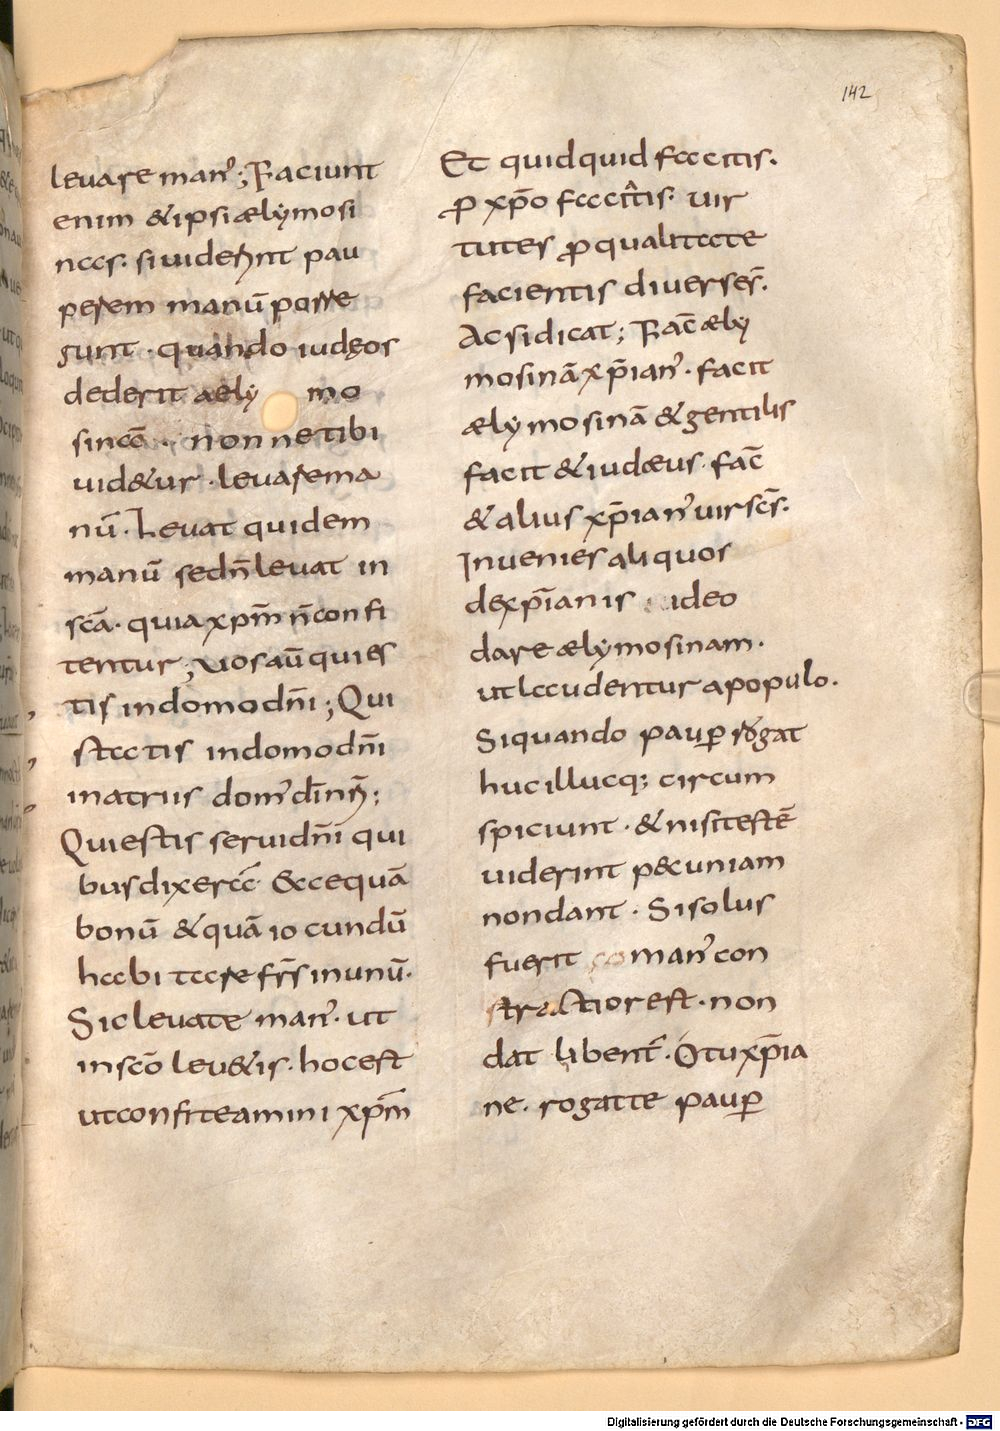 142
leuare man᾽; Faciunt
enim & ipsi ælymosi
nas. si uiderint pau
perem manū porre
gunt · quando iudęos
dederit aely mo
sinā · nonne tibi
uid&ur · leuare ma
nū · Leuat quidem
manū sed n̄ leuat in
scā · quia xp̄m n̄ confi
tentur; Uos aū qui es
tis in domo dn̄i; Qui
statis in domo dn̄i
in atriis dom᾽ dī nr̄i;
Qui estis serui dn̄i qui
bus dixerat · Ecce quā
bonū & quā iocundū
habitare fr̄s in unū ·
Sic leuate man᾽ · ut
in scō leu&is · hoc est
ut confiteamini xp̄m
Et quidquid facitis ·
ꝓ xp̄o faciatis · uir
tutes ꝓ qualitate
facientis diuersę s̄ ·
Ac si dicat; Fac̄ æly
mosinā xp̄ian᾽ · facit
ælymosinā & gentilis
facit & iudæus · fac̄
& alius xp̄ian᾽ uir sc̄s ·
Inuenies aliquos
de xp̄ianis ideo
dare ælymosinam ·
ut laudentur a populo ·
Si quando pauꝑ rogat
huc illucq; circum
spiciunt · & nisi testē
uiderint pecuniam
non dant · Si solus
fuerit man᾽ con
stractior est · non
dat libent᾽ · O tu xp̄ia
ne · rogat te pauꝑ
Digitalisierung gefördert durch die Deutsche Forschungsgemeinschaft - DFG